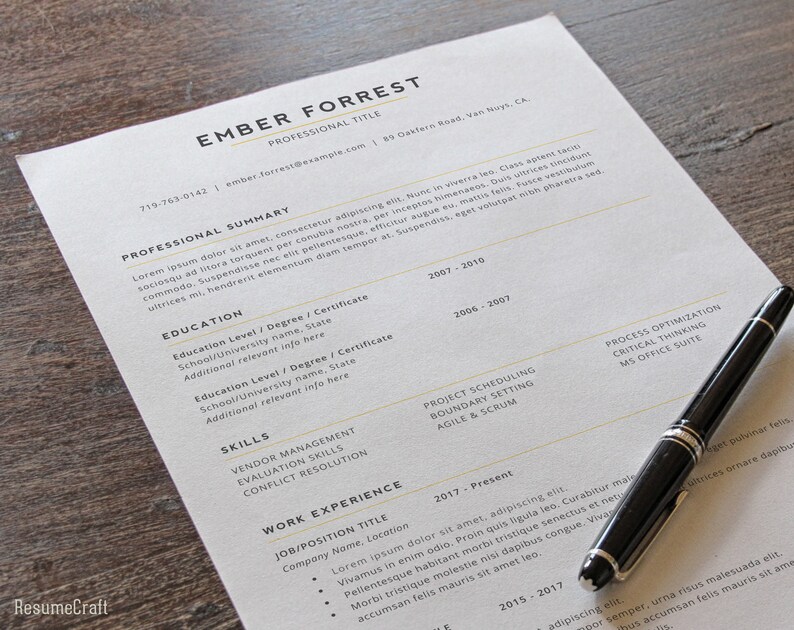 EMBER FORREST
PROFESSIONAL TITLE
719-763-0142 | ember.forrest@example.com | 89 Oakfern Road, Van Nuys, CA.
PROFESSIONAL SUMMARY
Lorem ipsum dolor sit amet, consectetur adipiscing elit. Nunc in viverra leo. Class aptent taciti
sociosqu ad litora torquent per conubia nostra, per inceptos himenaeos. Duis ultrices tincidunt
commodo. Suspendisse nec elit pellentesque, efficitur augue eu, mattis felis. Fusce vestibulum
ultrices mi, hendrerit elementum diam tempor at. Suspendiss, eget volutpat nibh pharetra sed.
EDUCATION
Education Level / Degree / Certificate 2007 - 2010
School/University name, State
Additional relevant info here
Education Level / Degree / Certificate 2006 - 2007
School/University name, State
Additional relevant info here
SKILLS
VENDOR MANAGEMENT PROJECT SCHEDULING PROCESS OPTIMIZATION
EVALUATION SKILLS BOUNDARY SETTING CRITICAL THINKING
CONFLICT RESOLUTION AGILE & SCRUM MS OFFICE SUITE
WORK EXPERIENCE
JOB/POSITION TITLE 2017 - Present
Company Name, Location
• Lorem ipsum dolor sit amet, adipiscing elit. eget pulvinar felis.
• Vivamus in enim odio. Proin quis ligula leo. Curabitur
• Pellentesque habitant morbi tristique senectus et ultrices ornare dapibus
• Morbi tristique molestie nisi dapibus congue.
• accumsan felis mauris sit amet leo.
2015 - 2017
risus malesuada elit.
semper, urna risus
accumsan felis mauris sit
ResumeCraft